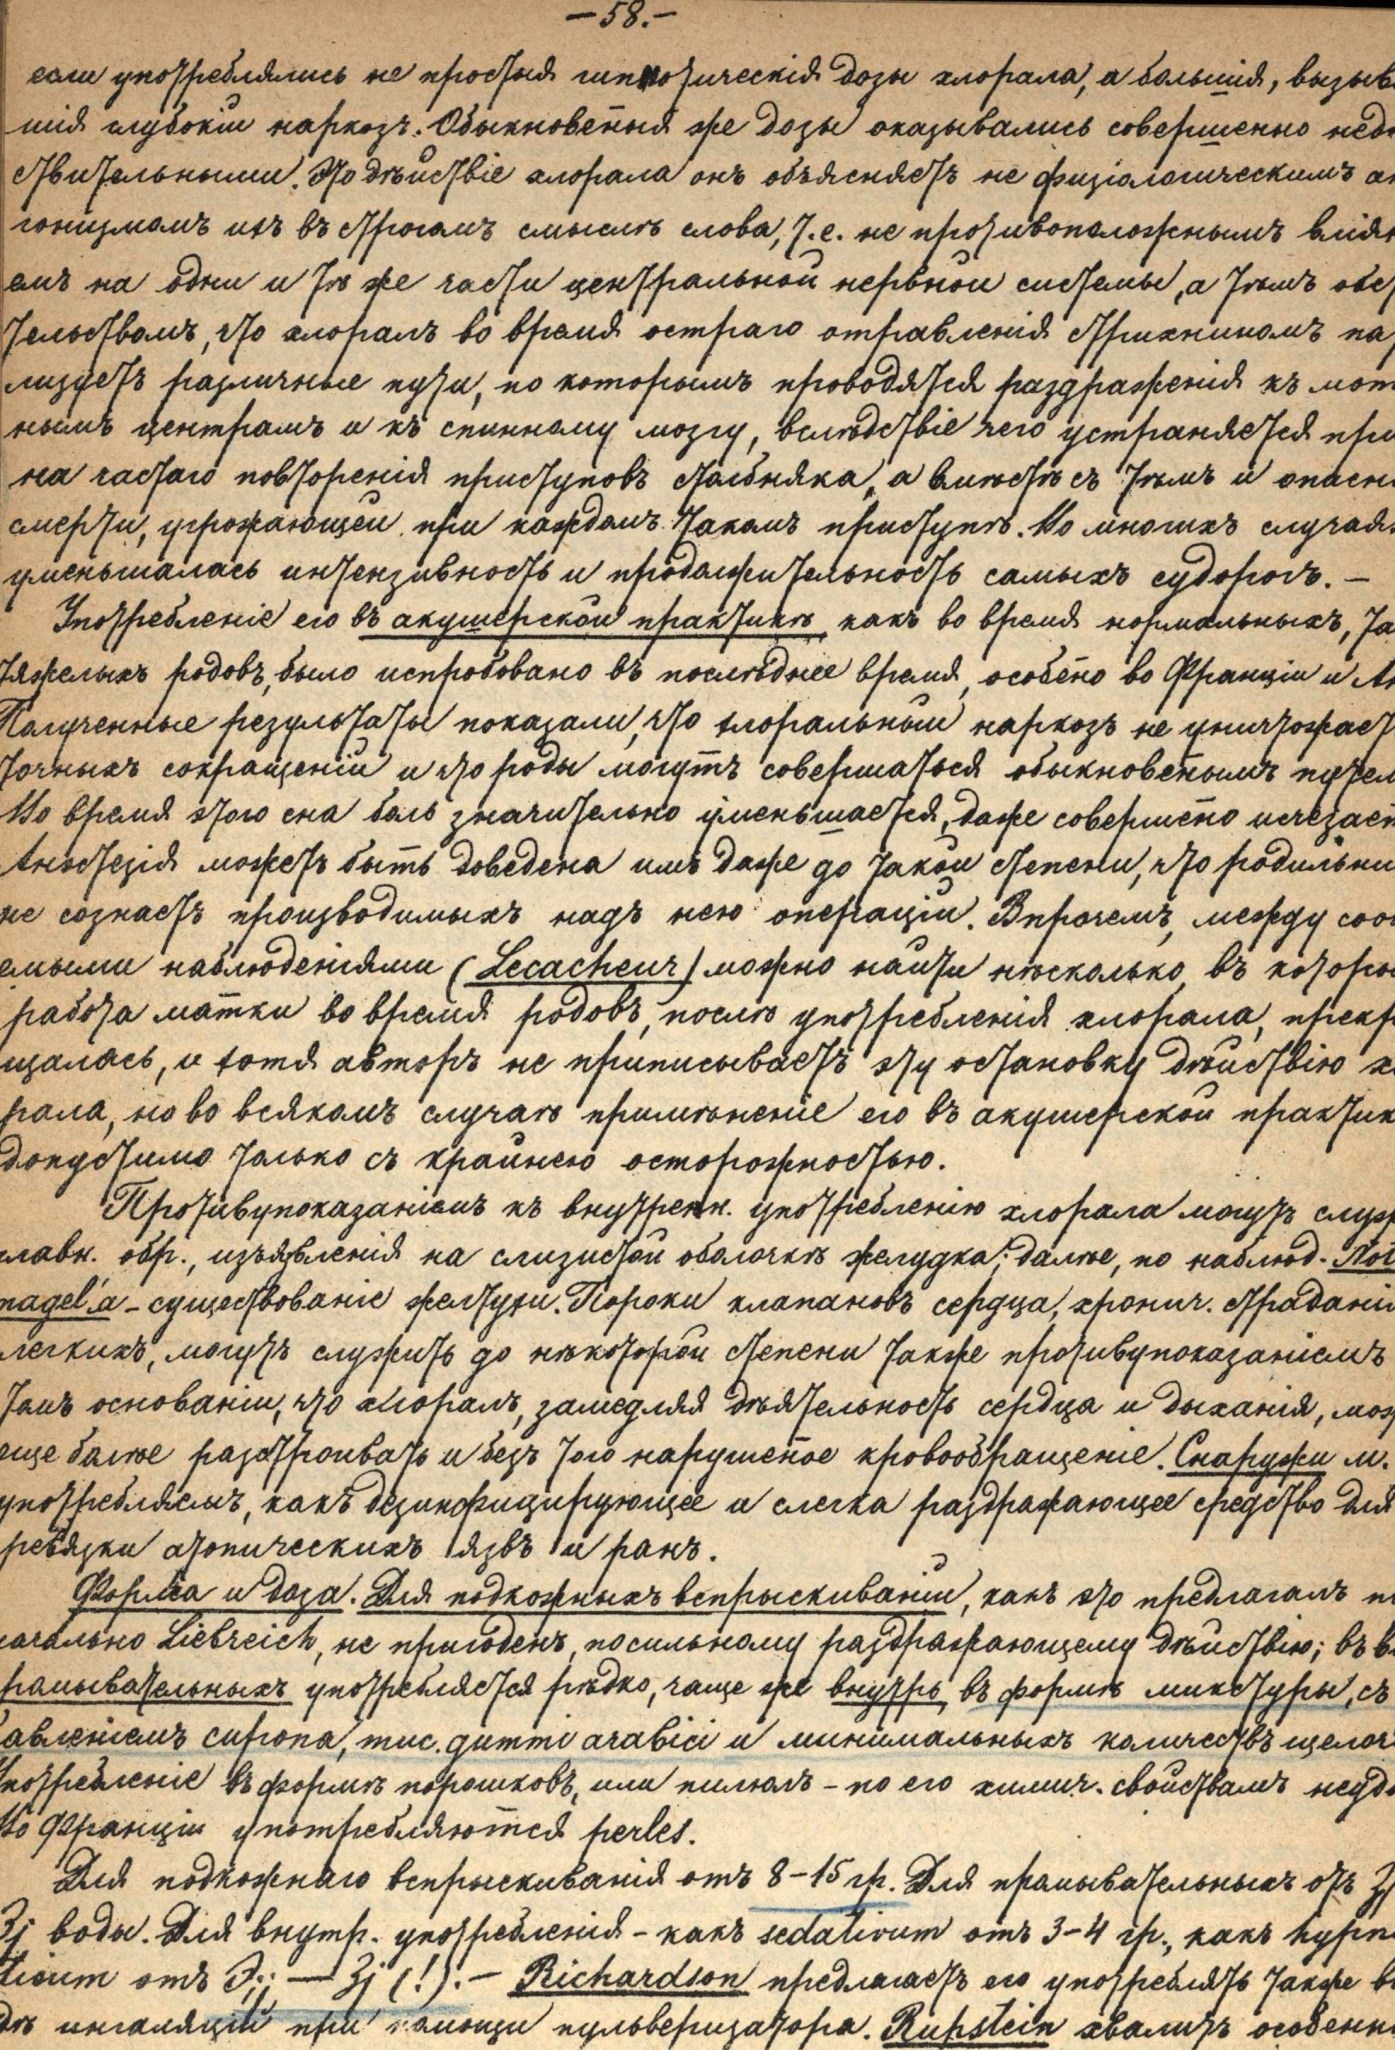 —58.—
если употреблялись не простыя гипнотическiя дозы хлорала, а большiя, вызыв
шiя глубокiй наркозъ. Обыкновен̄ыя же дозы оказывались совершенно недѣ
ствительными. Это дѣйствiе хлорала онъ объясняетъ не физiологическимъ ан
гонизмомъ ихъ въ строгомъ смыслѣ слова, т.е. не противоположнымъ влiян
емъ на одни и тѣ же части центральной нервной системы, а тѣмъ обст
тельствомъ, что хлоралъ во время остраго отравленiя стрихниномъ пар
лизуетъ различные пути, по которымъ проводятся раздраженiя къ мот
нымъ центрамъ и къ спинному мозгу, вслѣдствiе чего устраняется при
на частаго повторенiя приступовъ столбняка, а вмѣстѣ съ тѣмъ и опасн
смерти, угрожающей при каждомъ такомъ приступѣ. Во многихъ случаях
уменьшалась интензивность и продолжительность самыхъ судорогъ. —
Употребленiе его въ акушерской практикѣ, какъ во время нормальныхъ, та
тяжелыхъ родовъ, было испробовано въ послѣднее время, особен̄о во Францiи и Ан
Полученные результаты показали, что хлоральный наркозъ не уничтожает
точныхъ сокращенiй и что роды могутъ совершаться обыкновен̄ымъ путем
Во время этого сна боль значительно уменьшается, даже совершен̄о исчезает
Анестезiя можетъ быть доведена имъ даже до такой степени, что родильни
не сознаетъ производимыхъ надъ нею операцiй. Впрочемъ, между сооб
емыми наблюденiями (Lecacheur) можно найти нѣсколько, въ которы
работа матки во время родовъ, послѣ употребленiя хлорала, прекр
щалась, и хотя авторъ не приписываетъ эту остановку дѣйствiю хл
рала, но во всякомъ случаѣ примѣненiе его въ акушерской практик
допустимо только съ крайнею осторожностью.
Противупоказанiемъ къ внутренн. употребленiю хлорала могутъ служ
главн. обр., изъязвленiя на слизистой оболочкѣ желудка; далѣе, по наблюд. Not
nagel'а – существованiе желтухи. Пороки клапановъ сердца, хронич. страданi
легкихъ, могутъ служить до нѣкоторой степени также противупоказанiемъ
томъ основанiи, что хлоралъ, замедляя дѣятельность сердца и дыханiя, мож
еще болѣе разстроивать и безъ того нарушен̄ое кровообращенiе. Снаружи м.
употребляемъ, какъ дезинфицирующее и слегка раздражающее средство для
ревязки атоническихъ язвъ и ранъ.
Форма и доза. Для подкожныхъ впрыскиванiй, какъ это предлагалъ пе
начально Liebreich, не пригоденъ, по сильному раздражающему дѣйствiю; въ в
ромывательныхъ употребляется рѣдко, чаще же внутрь, въ формѣ микстуры, съ
бавленiемъ сиропа, muc. gummi arabici и минимальныхъ количествъ щелоч
Употребленiе въ формѣ порошковъ, или пилюль – по его химич. свойствамъ неудо
Во Францiи употребляются perles.
Для подкожнаго впрыскиванiя отъ 8–15 гр. Для промывательныхъ отъ ʒj
ʒj воды. Для внутр. употребленiя – какъ sedativum отъ 3–4 гр., какъ hypn
ticum отъ ℈jj — ʒj (!). – Richardson предлагаетъ его употреблять также въ
дѣ ингаляцiй при помощи пульверизатора. Rupstein хвалитъ особенн